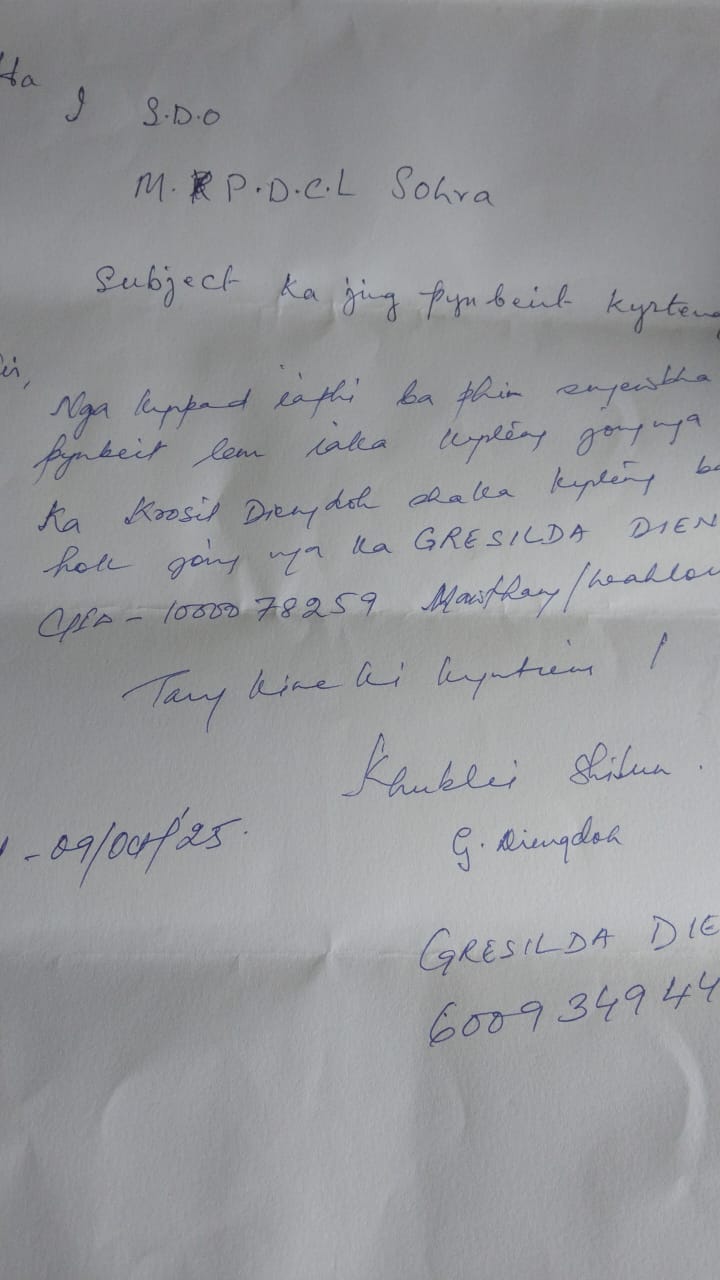 Ha
I S.D.O
M. P.D.C.L Sohra
Subject Ka jing pynbeit kyrteng
Sir,
Nga kyrpad iaphi ba phin sngewbha
pynbeit lem iaka kyrteng jong nga
Ka Krosil Diengdoh shaka kyrteng ba
hok jong nga ka GRESILDA DIEN
10000 78259
Tang kine ki kyntien !
Khublei Shibun.
- 09/Oct/'25.
G. Diengdoh
GRESILDA DIE
6009 349 44